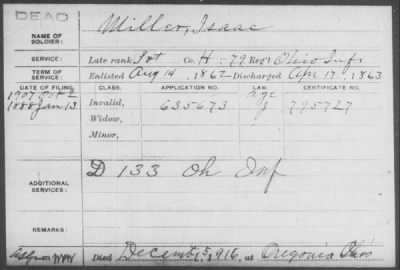 DEAD
NAME OF SOLDIER: Miller, Isaac
SERVICE: Late rank Pvt Co. H - 79 Reg't Ohio Inf.
TERM OF SERVICE: Enlisted Aug 14, 1862 Discharged Apr 17, 1863
DATE OF FILING. CLASS. APPLICATION NO. LAW. CERTIFICATE NO.
1907 Oct 2
1888 Jan 13 Invalid, 635673 795727
Widow,
Minor,
ADDITIONAL SERVICES: D 133 Oh Inf
REMARKS:
Died December 5, 1916, at Oregonia Ohio